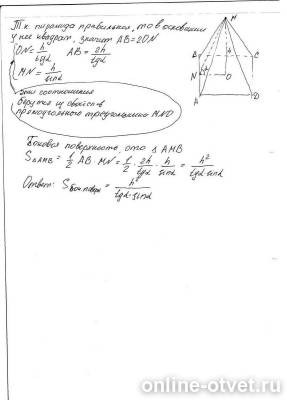 Т.к пирамида правильная, то в основании
у нее квадрат, значит AB=2ON
ON = h/tgα AB = 2h/tgα
MN = h/sinα
Эти соотношения
берутся из свойств
прямоугольного треугольника MNO
M
B
C
h
N
O
A
D
Боковая поверхность, это ΔAMB
SΔAMB = 1/2 AB · MN = 1/2 · 2h/tgα · h/sinα = h²/tgα·sinα
Ответ: Sбок.поверх = h²/tgα·sinα
online-otvet.ru